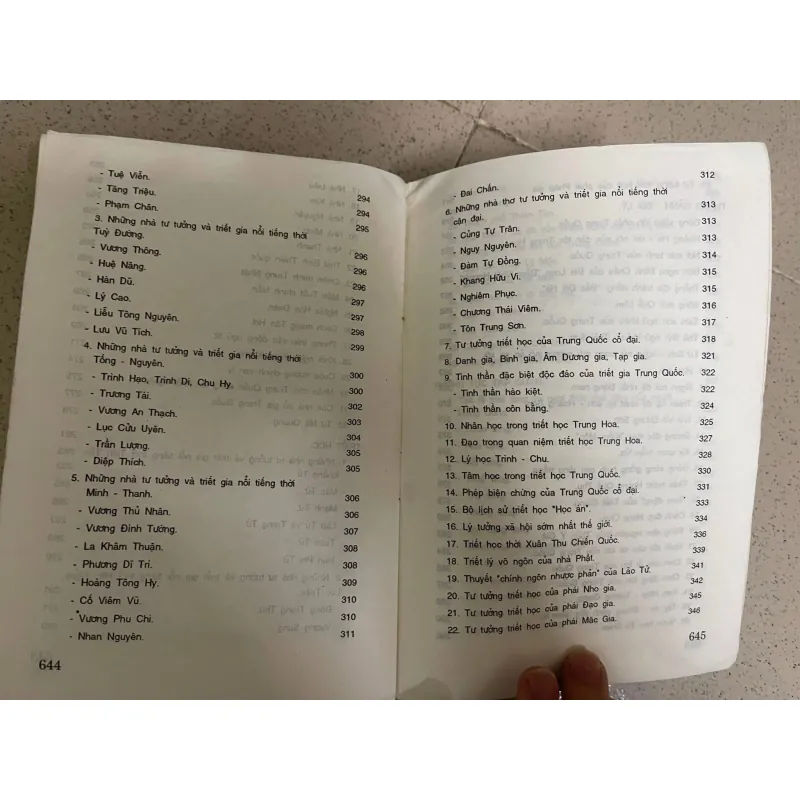 - Tuệ Viễn. 294
- Tăng Triệu. 294
- Phạm Chân. 295
3. Những nhà tư tưởng và triết gia nổi tiếng thời
Tuỳ Đường. 296
- Vương Thông. 296
- Huệ Năng. 296
- Hàn Dũ. 297
- Lý Cao. 297
- Liễu Tông Nguyên. 298
- Lưu Vũ Tích. 299
4. Những nhà tư tưởng và triết gia nổi tiếng thời
Tống - Nguyên. 300
- Trình Hạo, Trình Di, Chu Hy. 300
- Trương Tải. 302
- Vương An Thạch. 304
- Lục Cửu Uyên. 304
- Trần Lượng. 305
- Diệp Thích. 305
5. Những nhà tư tưởng và triết gia nổi tiếng thời
Minh - Thanh. 306
- Vương Thủ Nhân. 306
- Vương Đình Tướng. 308
- La Khâm Thuận. 308
- Phương Dĩ Trí. 308
- Hoàng Tông Hy. 309
- Cố Viêm Vũ. 310
- Vương Phu Chi. 310
- Nhan Nguyên. 311
644
- Đai Chấn. 312
6. Những nhà thơ tư tưởng và triết gia nổi tiếng thời
cận đại. 313
- Củng Tự Trân. 313
- Ngụy Nguyên. 313
- Đàm Tự Đồng. 314
- Khang Hữu Vi. 315
- Nghiêm Phục. 315
- Chương Thái Viêm. 316
- Tôn Trung Sơn. 317
7. Tư tưởng triết học của Trung Quốc cổ đại. 318
8. Danh gia, Binh gia, Âm Dương gia, Tạp gia. 321
9. Tinh thần đặc biệt độc đáo của triết gia Trung Quốc. 322
- Tinh thần hào kiệt. 322
- Tinh thần côn bằng. 324
10. Nhân học trong triết học Trung Hoa. 325
11. Đạo trong quan niệm triết học Trung Hoa. 327
12. Lý học Trình - Chu. 328
13. Tâm học trong triết học Trung Quốc. 330
14. Phép biện chứng của Trung Quốc cổ đại. 331
15. Bộ lịch sử triết học "Học án". 333
16. Lý tưởng xã hội sớm nhất thế giới. 334
17. Triết học thời Xuân Thu Chiến Quốc. 336
18. Triết lý vô ngôn của nhà Phật. 339
19. Thuyết "chính ngôn nhược phản" của Lão Tử. 341
20. Tư tưởng triết học của phái Nho gia. 342
21. Tư tưởng triết học của phái Đạo gia. 345
22. Tư tưởng triết học của phái Mặc Gia. 346
645